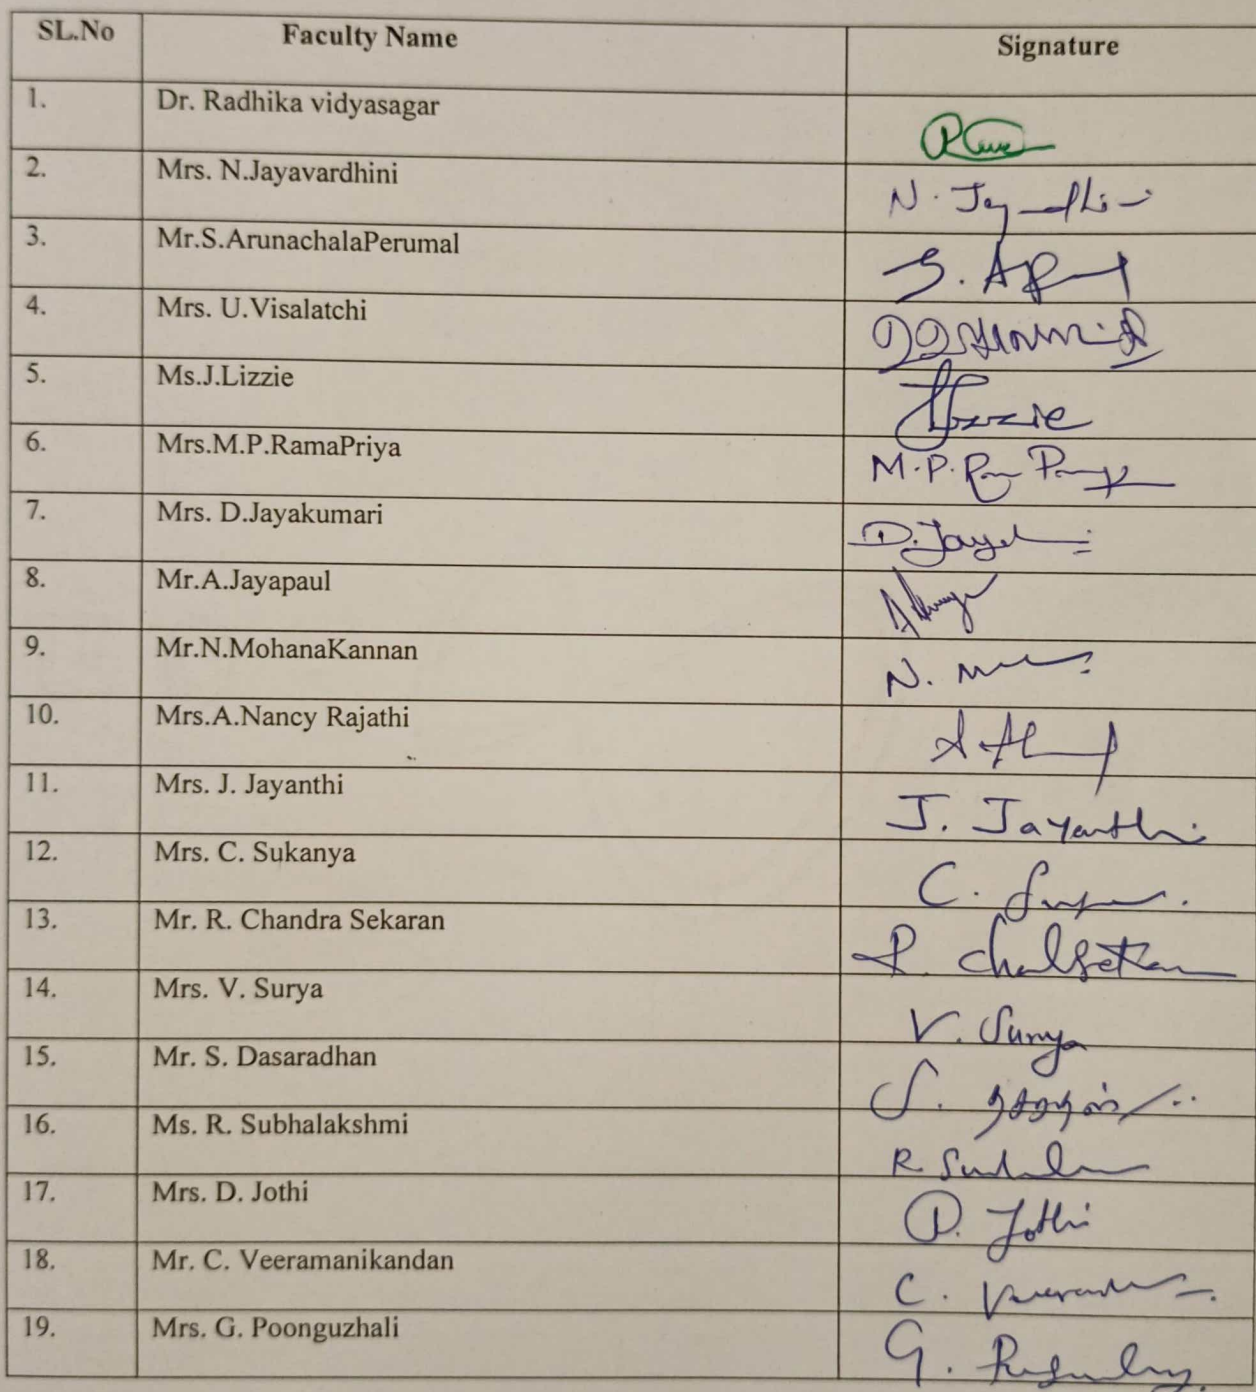 SL.No Faculty Name Signature
1. Dr. Radhika vidyasagar
2. Mrs. N.Jayavardhini N.
3. Mr.S.ArunachalaPerumal S.
4. Mrs. U.Visalatchi
5. Ms.J.Lizzie Lizzie
6. Mrs.M.P.RamaPriya M.P.
7. Mrs. D.Jayakumari D.
8. Mr.A.Jayapaul
9. Mr.N.MohanaKannan N.
10. Mrs.A.Nancy Rajathi
11. Mrs. J. Jayanthi J. Jayanthi
12. Mrs. C. Sukanya C.
13. Mr. R. Chandra Sekaran
14. Mrs. V. Surya V. Surya
15. Mr. S. Dasaradhan S.
16. Ms. R. Subhalakshmi R
17. Mrs. D. Jothi D. Jothi
18. Mr. C. Veeramanikandan C.
19. Mrs. G. Poonguzhali G.